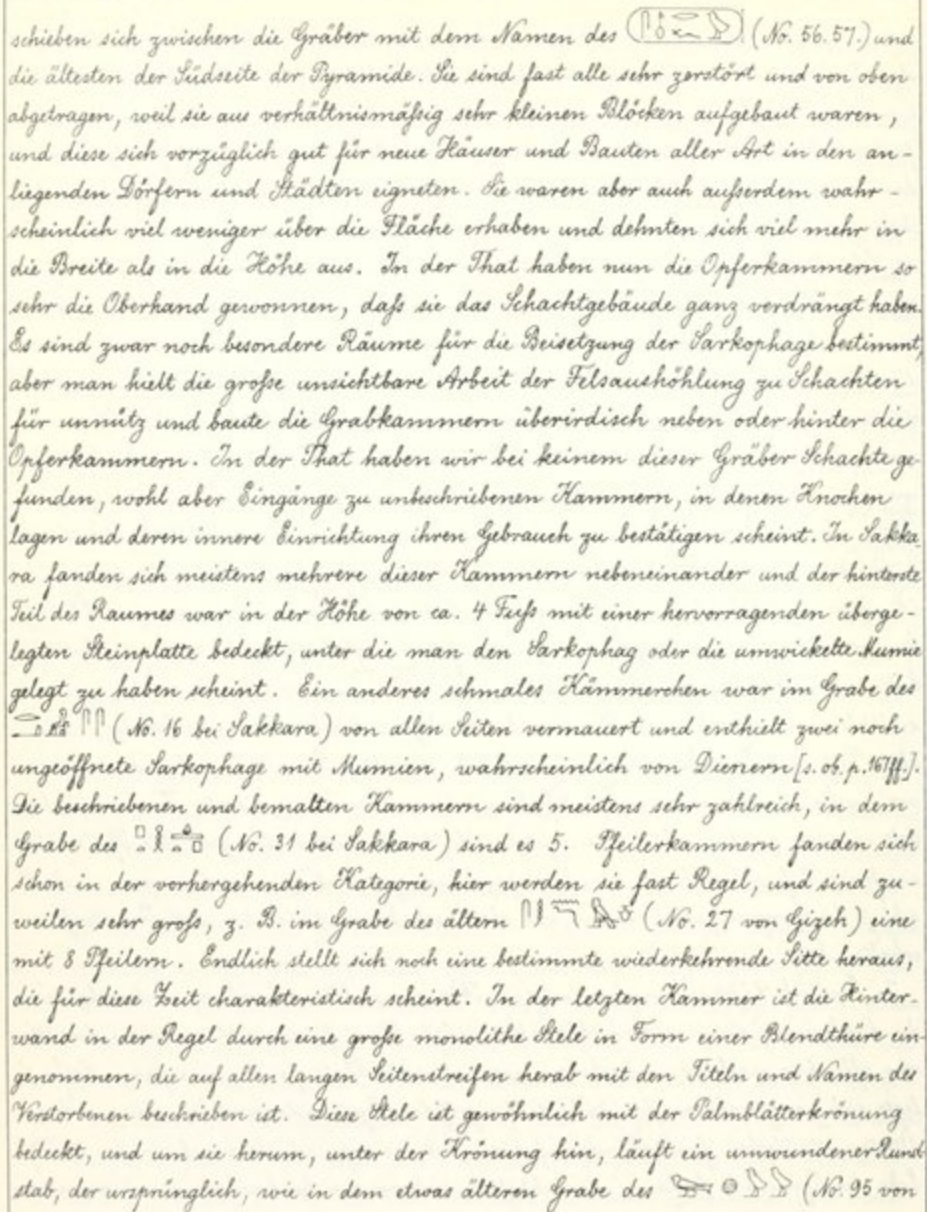 schieben sich zwischen die Gräber mit dem Namen des (No. 56.57.) und
die ältesten der Südseite der Pyramide. Sie sind fast alle sehr zerstört und von oben
abgetragen, weil sie aus verhältnismäßig sehr kleinen Blöcken aufgebaut waren,
und diese sich vorzüglich gut für neue Häuser und Bauten aller Art in den an-
liegenden Dörfern und Städten eigneten. Sie waren aber auch außerdem wahr-
scheinlich viel weniger über die Fläche erhaben und dehnten sich viel mehr in
die Breite als in die Höhe aus. In der That haben nun die Opferkammern so
sehr die Oberhand gewonnen, daß sie das Schachtgebäude ganz verdrängt haben.
Es sind zwar noch besondere Räume für die Beisetzung der Sarkophage bestimmt,
aber man hielt die große unsichtbare Arbeit der Felsaushöhlung zu Schachten
für unnütz und baute die Grabkammern überirdisch neben oder hinter die
Opferkammern. In der That haben wir bei keinem dieser Gräber Schachte ge-
funden, wohl aber Eingänge zu unbeschriebenen Kammern, in denen Knochen
lagen und deren innere Einrichtung ihren Gebrauch zu bestätigen scheint. In Sakka-
ra fanden sich meistens mehrere dieser Kammern nebeneinander und der hinterste
Teil des Raumes war in der Höhe von ca. 4 Fuß mit einer hervorragenden überge-
legten Steinplatte bedeckt, unter die man den Sarkophag oder die umwickelte Mumie
gelegt zu haben scheint. Ein anderes schmales Kämmerchen war im Grabe des
(No. 16 bei Sakkara) von allen Seiten vermauert und enthielt zwei noch
ungeöffnete Sarkophage mit Mumien, wahrscheinlich von Dienern [s. ob. p. 167ff.].
Die beschriebenen und bemalten Kammern sind meistens sehr zahlreich, in dem
Grabe des (No. 31 bei Sakkara) sind es 5. Pfeilerkammern fanden sich
schon in der vorhergehenden Kategorie, hier werden sie fast Regel, und sind zu-
weilen sehr groß, z. B. im Grabe des ältern (No. 27 von Gizeh) eine
mit 8 Pfeilern. Endlich stellt sich noch eine bestimmte wiederkehrende Sitte heraus,
die für diese Zeit charakteristisch scheint. In der letzten Kammer ist die Hinter-
wand in der Regel durch eine große monolithe Stele in Form einer Blendthüre ein-
genommen, die auf allen langen Seitenstreifen herab mit den Titeln und Namen des
Verstorbenen beschrieben ist. Diese Stele ist gewöhnlich mit der Palmblätterkrönung
bedeckt, und um sie herum, unter der Krönung hin, läuft ein umwundener Rund-
stab, der ursprünglich, wie in dem etwas älteren Grabe des (No. 95 von